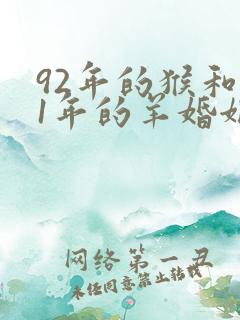 92年的猴和
1年的羊婚姻
网络第一丑
未经同意禁止转载